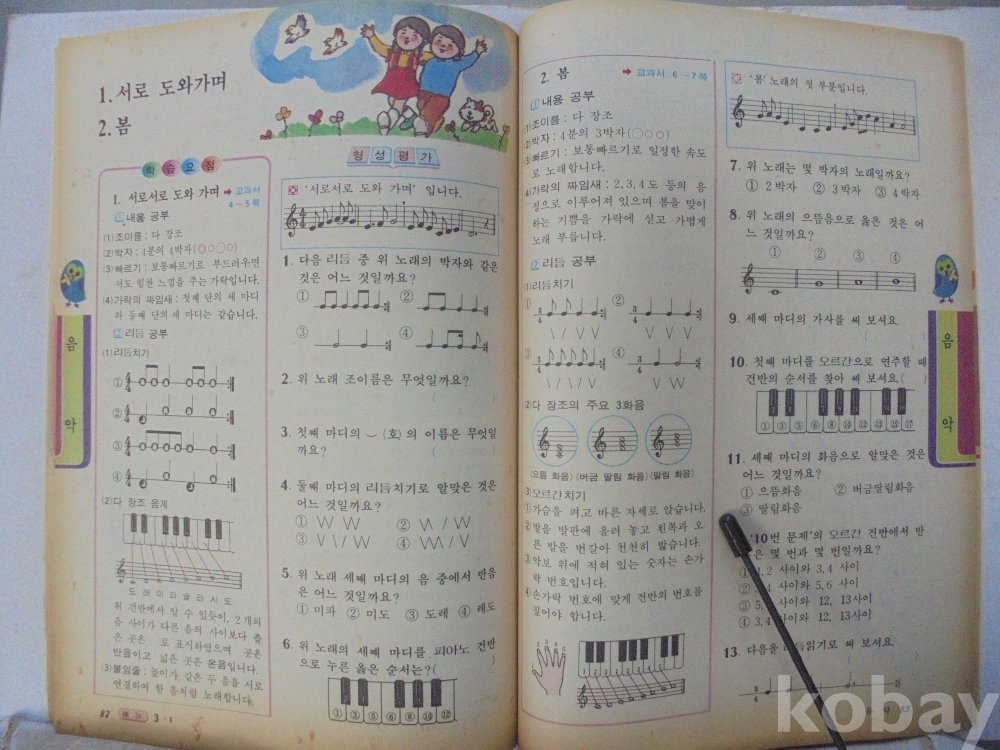 1. 서로 도와가며
2. 봄
학습요점
1. 서로서로 도와 가며 ➡ 교과서
4~5쪽
1 내용 공부
(1)조이름: 다 장조
(2)박자: 4분의 4박자(◎○○○)
(3)빠르기: 보통빠르기로 부드러우면
서도 힘찬 느낌을 주는 가락입니다.
(4)가락의 짜임새: 첫째 단의 세 마디
와 둘째 단의 세 마디는 같습니다.
2 리듬 공부
(1)리듬치기
①
②
③
④
(2)다 장조 음계
도 레 미 파 솔 라 시 도
위 건반에서 알 수 있듯이, 2 개의
음 사이가 다른 음의 사이보다 좁
은 곳은 로 표시하였으며 곳은
반음이고 넓은 곳은 온음입니다.
(3)붙임줄: 높이가 같은 두 음을 서로
연결하여 한 음처럼 노래합니다.
82 3-1
형성평가
'서로서로 도와 가며' 입니다.
1. 다음 리듬 중 위 노래의 박자와 같은
것은 어느 것일까요?
① ②
③ ④
2. 위 노래 조이름은 무엇일까요?
( )
3. 첫째 마디의 (호)의 이름은 무엇일
까요? ( )
4. 둘째 마디의 리듬치기로 알맞은 것은
어느 것일까요?
① ②
③ ④
5. 위 노래 세째 마디의 음 중에서 반음
은 어느 것일까요?
① 미파 ② 미도 ③ 도레 ④ 레도
6. 위 노래의 세째 마디를 피아노 건반
으로 누른 옳은 순서는?( )
① ③ ⑤ ⑥ ⑧ ⑩ ⑫
음
악
2. 봄 ➡ 교과서 6~7쪽
1 내용 공부
(1)조이름: 다 장조
(2)박자: 4분의 3박자(◎○○)
(3)빠르기: 보통빠르기로 일정한 속도
로 노래합니다.
(4)가락의 짜임새: 2, 3, 4도 등의 음
정으로 이루어져 있으며 봄을 맞이
하는 기쁨을 가락에 싣고 가볍게
노래 부릅니다.
2 리듬 공부
(1)리듬치기
① ②
③ ④
(2)다 장조의 주요 3화음
(으뜸 화음)(버금 딸림 화음)(딸림 화음)
(3)오르간 치기
①가슴을 펴고 바른 자세로 앉습니다.
②발을 발판에 올려 놓고 왼쪽과 오
른 발을 번갈아 천천히 밟습니다.
③악보 위에 적혀 있는 숫자는 손가
락 번호입니다.
④손가락 번호에 맞게 건반의 번호를
짚어야 합니다.
'봄' 노래의 첫 부분입니다.
7. 위 노래는 몇 박자의 노래일까요?
① 2박자 ② 3박자 ③ 4박자
8. 위 노래의 으뜸음으로 옳은 것은 어
느 것일까요?
① ② ③ ④
9. 세째 마디의 가사를 써 보셔요.
( )
10. 첫째 마디를 오르간으로 연주할 때
건반의 순서를 찾아 써 보셔요.( )
11. 세째 마디의 화음으로 알맞은 것은
어느 것일까요?
① 으뜸화음 ② 버금딸림화음
③ 딸림화음
'10번 문제'의 오르간 건반에서 반
은 몇 번과 몇 번일까요?
2 사이와 3, 4 사이
사이와 5, 6 사이
사이와 12, 13사이
④ 3, 4 사이와 12, 13사이
13. 다음을 리듬읽기로 써 보셔요.
음
악
kobay